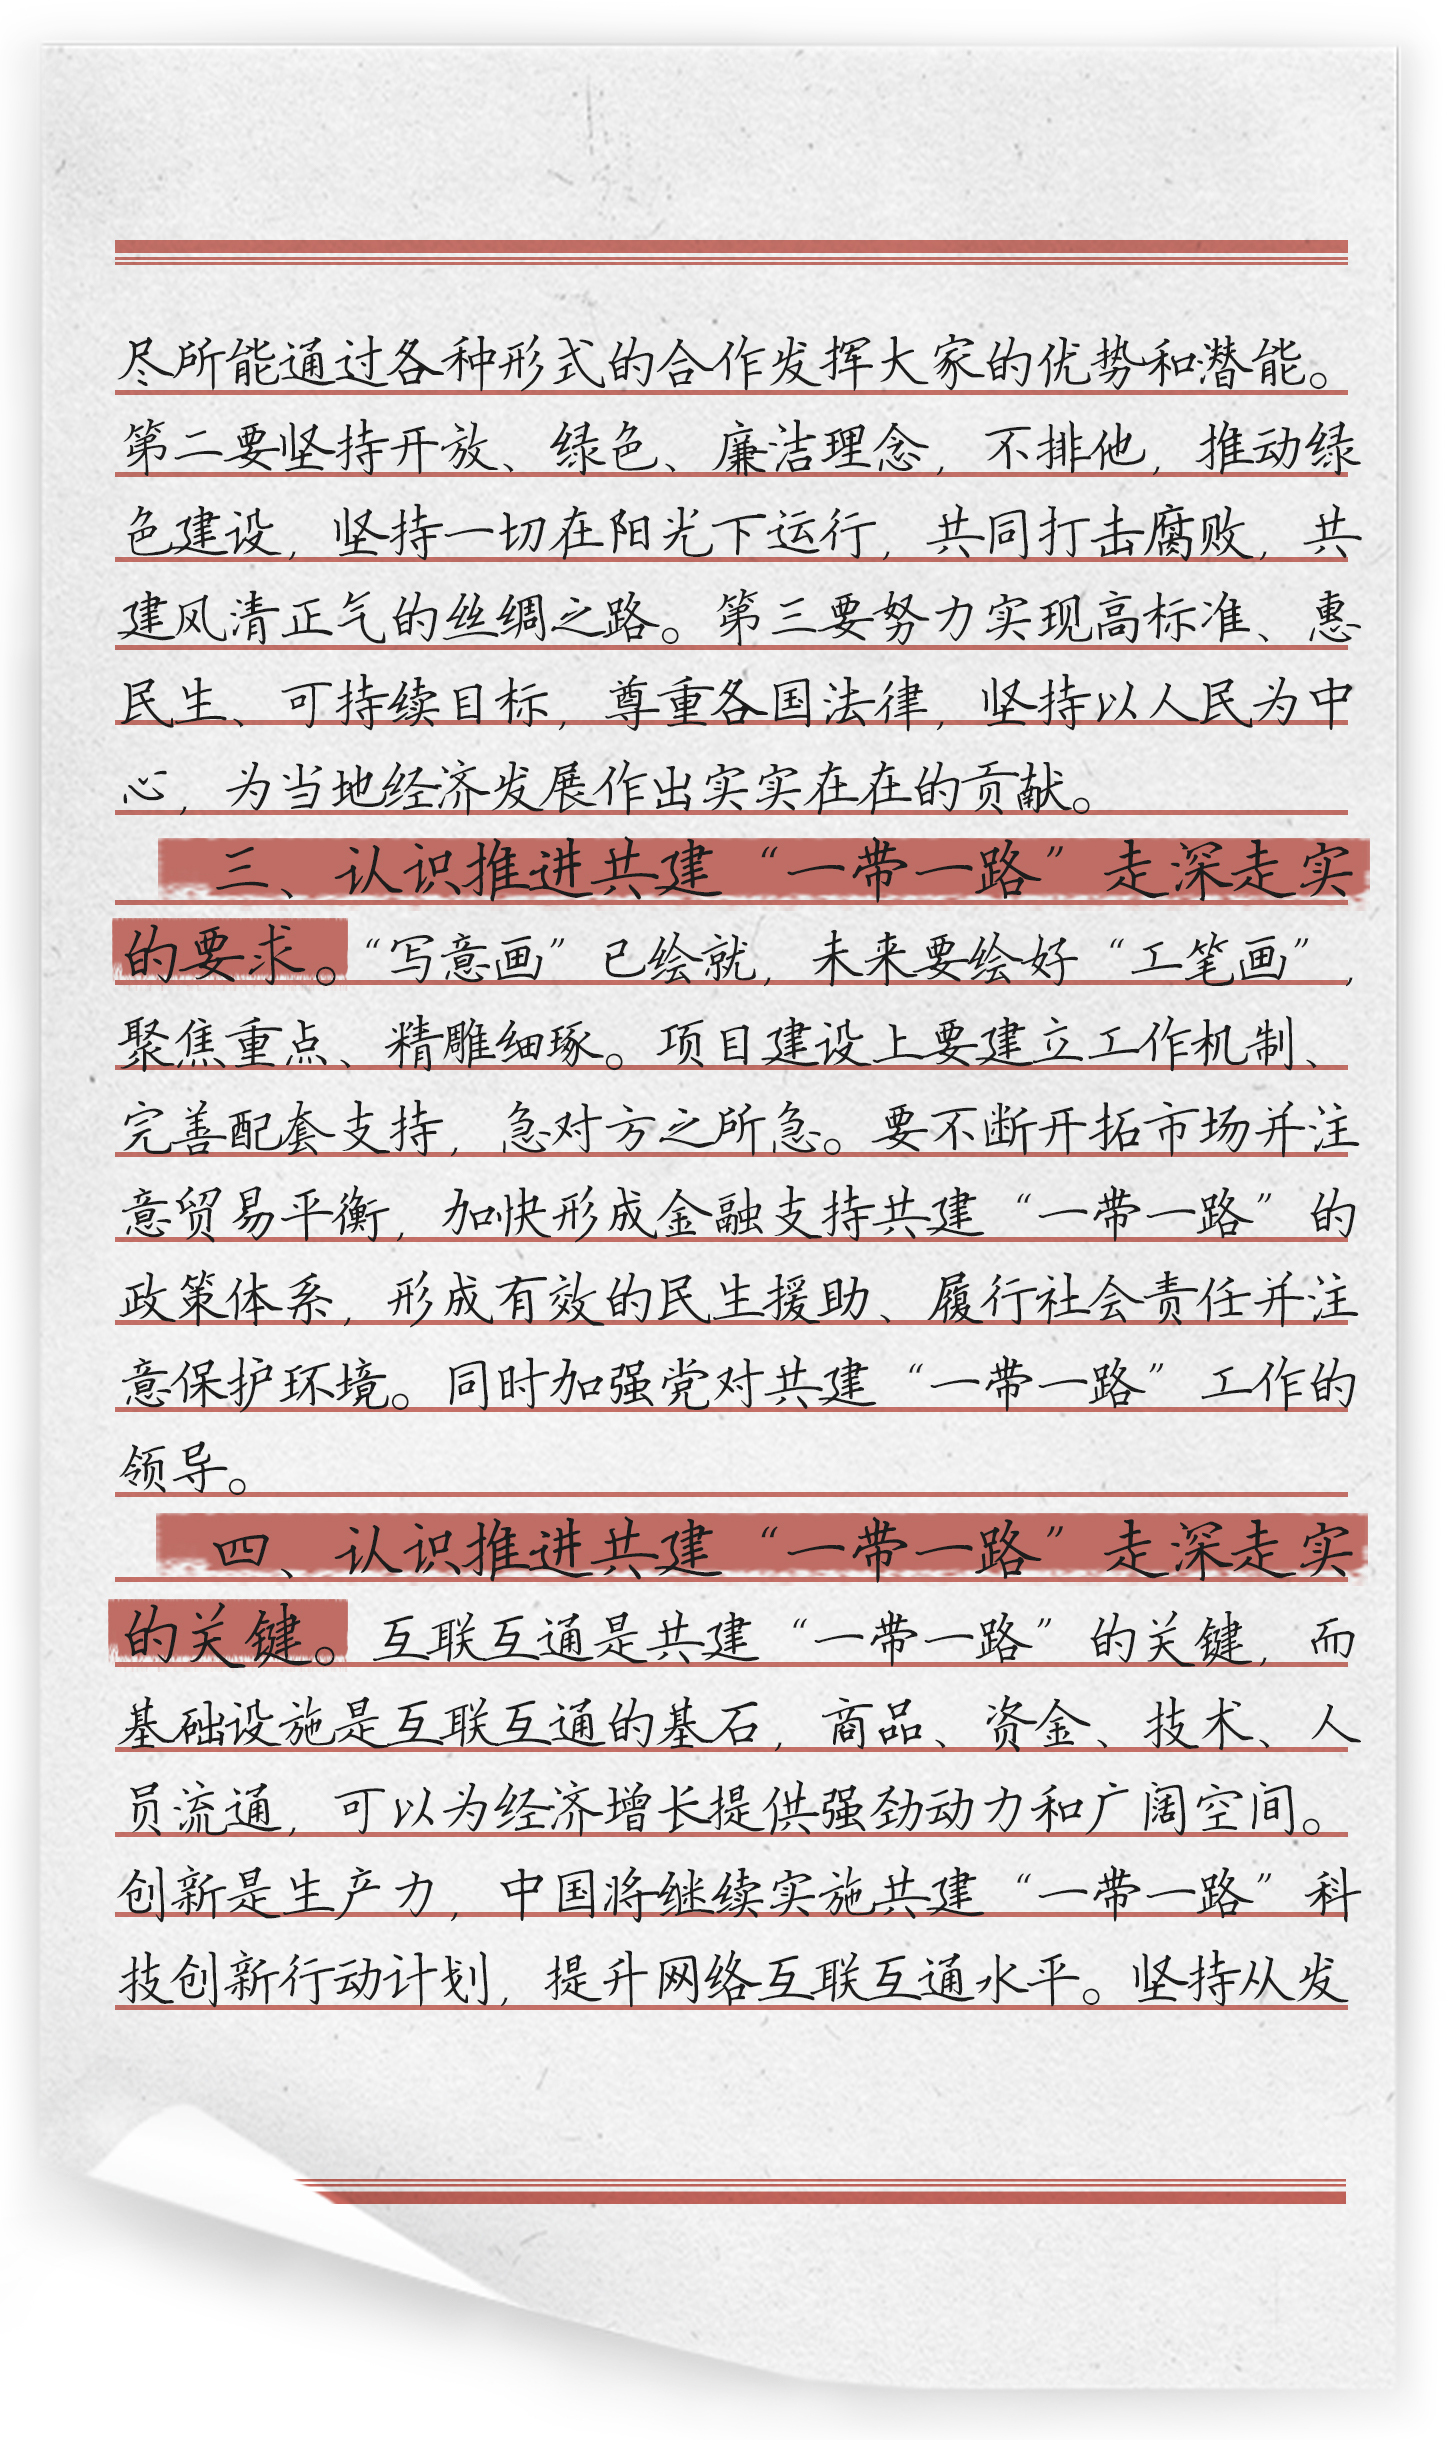 尽所能通过各种形式的合作发挥大家的优势和潜能。
第二要坚持开放、绿色、廉洁理念，不排他，推动绿
色建设，坚持一切在阳光下运行，共同打击腐败，共
建风清正气的丝绸之路。第三要努力实现高标准、惠
民生、可持续目标，尊重各国法律，坚持以人民为中
心，为当地经济发展作出实实在在的贡献。
三、认识推进共建“一带一路”走深走实
的要求。“写意画”已绘就，未来要绘好“工笔画”，
聚焦重点、精雕细琢。项目建设上要建立工作机制、
完善配套支持，急对方之所急。要不断开拓市场并注
意贸易平衡，加快形成金融支持共建“一带一路”的
政策体系，形成有效的民生援助、履行社会责任并注
意保护环境。同时加强党对共建“一带一路”工作的
领导。
四、认识推进共建“一带一路”走深走实
的关键。互联互通是共建“一带一路”的关键，而
基础设施是互联互通的基石，商品、资金、技术、人
员流通，可以为经济增长提供强劲动力和广阔空间。
创新是生产力，中国将继续实施共建“一带一路”科
技创新行动计划，提升网络互联互通水平。坚持从发